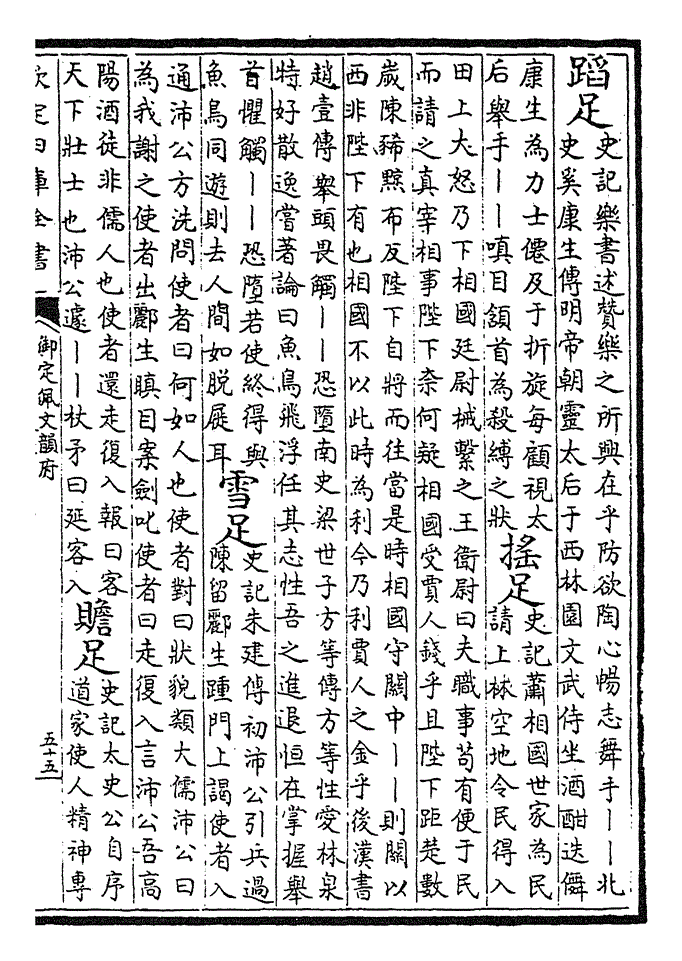 蹈足
史記樂書述贊樂之所興在乎防欲陶心暢志舞手丨丨北
史奚康生傳明帝朝靈太后于西林園文武侍坐酒酣迭儛
康生為力士儛及于折旋每顧視太
后舉手丨丨嗔目頷首為殺縛之狀
搖足
史記蕭相國世家為民
請上林空地令民得入
田上大怒乃下相國廷尉械繫之王衛尉曰夫職事苟有便于民
而請之真宰相事陛下奈何疑相國受賈人錢乎且陛下距楚數
歲陳豨黥布反陛下自將而往當是時相國守關中丨丨則關以
西非陛下有也相國不以此時為利今乃利賈人之金乎後漢書
趙壹傳舉頭畏觸丨丨恐墮南史梁世子方等傳方等性愛林泉
特好散逸嘗著論曰魚鳥飛浮任其志性吾之進退恒在掌握舉
首懼觸丨丨恐墮若使終得與
魚鳥同遊則去人間如脫屣耳
雪足
史記朱建傳初沛公引兵過
陳留酈生踵門上謁使者入
通沛公方洗問使者曰何如人也使者對曰狀貌類大儒沛公曰
為我謝之使者出酈生瞋目案劍叱使者曰走復入言沛公吾高
陽酒徒非儒人也使者還走復入報曰客
天下壯士也沛公遽丨丨杖矛曰延客入
贍足
史記太史公自序
道家使人精神專
欽定四庫全書
御定佩文韻府
五十五